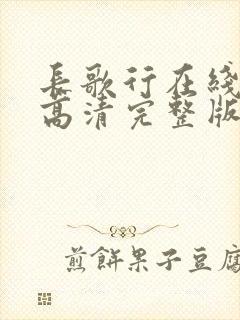 长歌行在线
高清完整版
煎餅果子豆腐